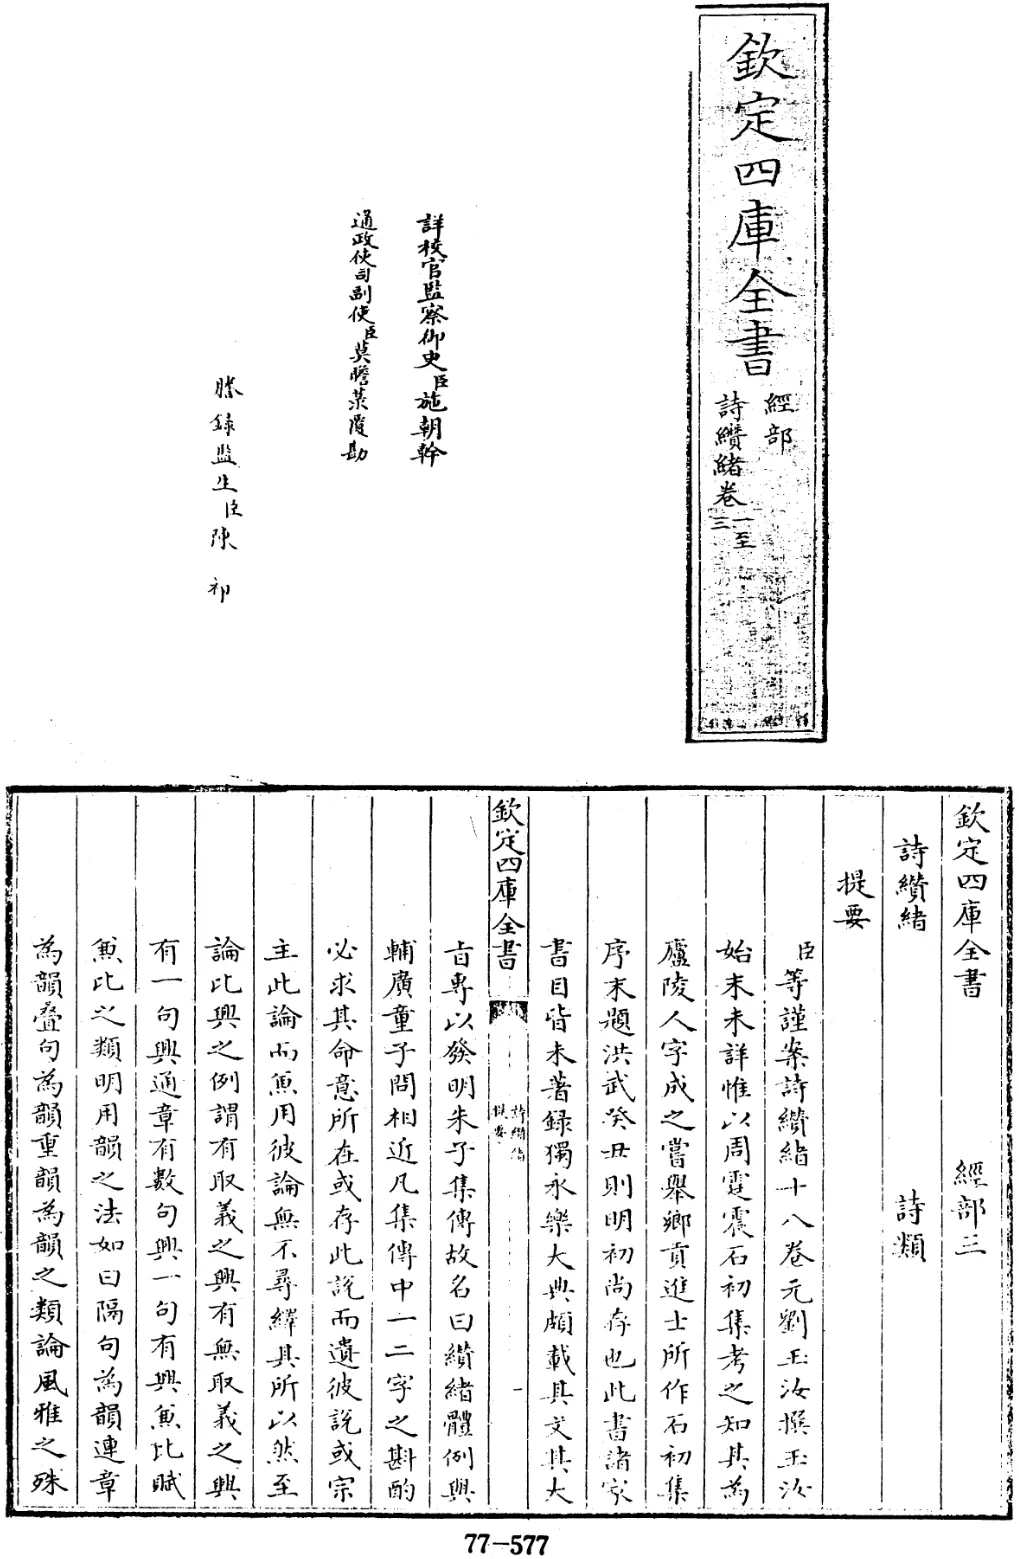 欽定四庫全書
經部
詩纘緒卷一至三
詳校官監察御史臣施朝幹
通政使司副使臣莫瞻菉覆勘
謄錄監生臣陳 礽
欽定四庫全書 經部三
詩纘緒 詩類
提要
臣等謹案詩纘緒十八卷元劉玉汝撰玉汝
始末未詳惟以周霆震石初集考之知其為
廬陵人字成之嘗舉鄉貢進士所作石初集
序末題洪武癸丑則明初尚存也此書諸家
書目皆未著録獨永樂大典頗載其文其大
欽定四庫全書
詩纘緒
提要
一
㫖專以發明朱子集傳故名曰纘緒體例與
輔廣童子問相近凡集傳中一二字之斟酌
必求其命意所在或存此說而遺彼說或宗
主此論而兼用彼論無不尋繹其所以然至
論比興之例謂有取義之興有無取義之興
有一句興通章有數句興一句有興兼比賦
兼比之類明用韻之法如曰隔句為韻連章
為韻疊句為韻重韻為韻之類論風雅之殊
77-577